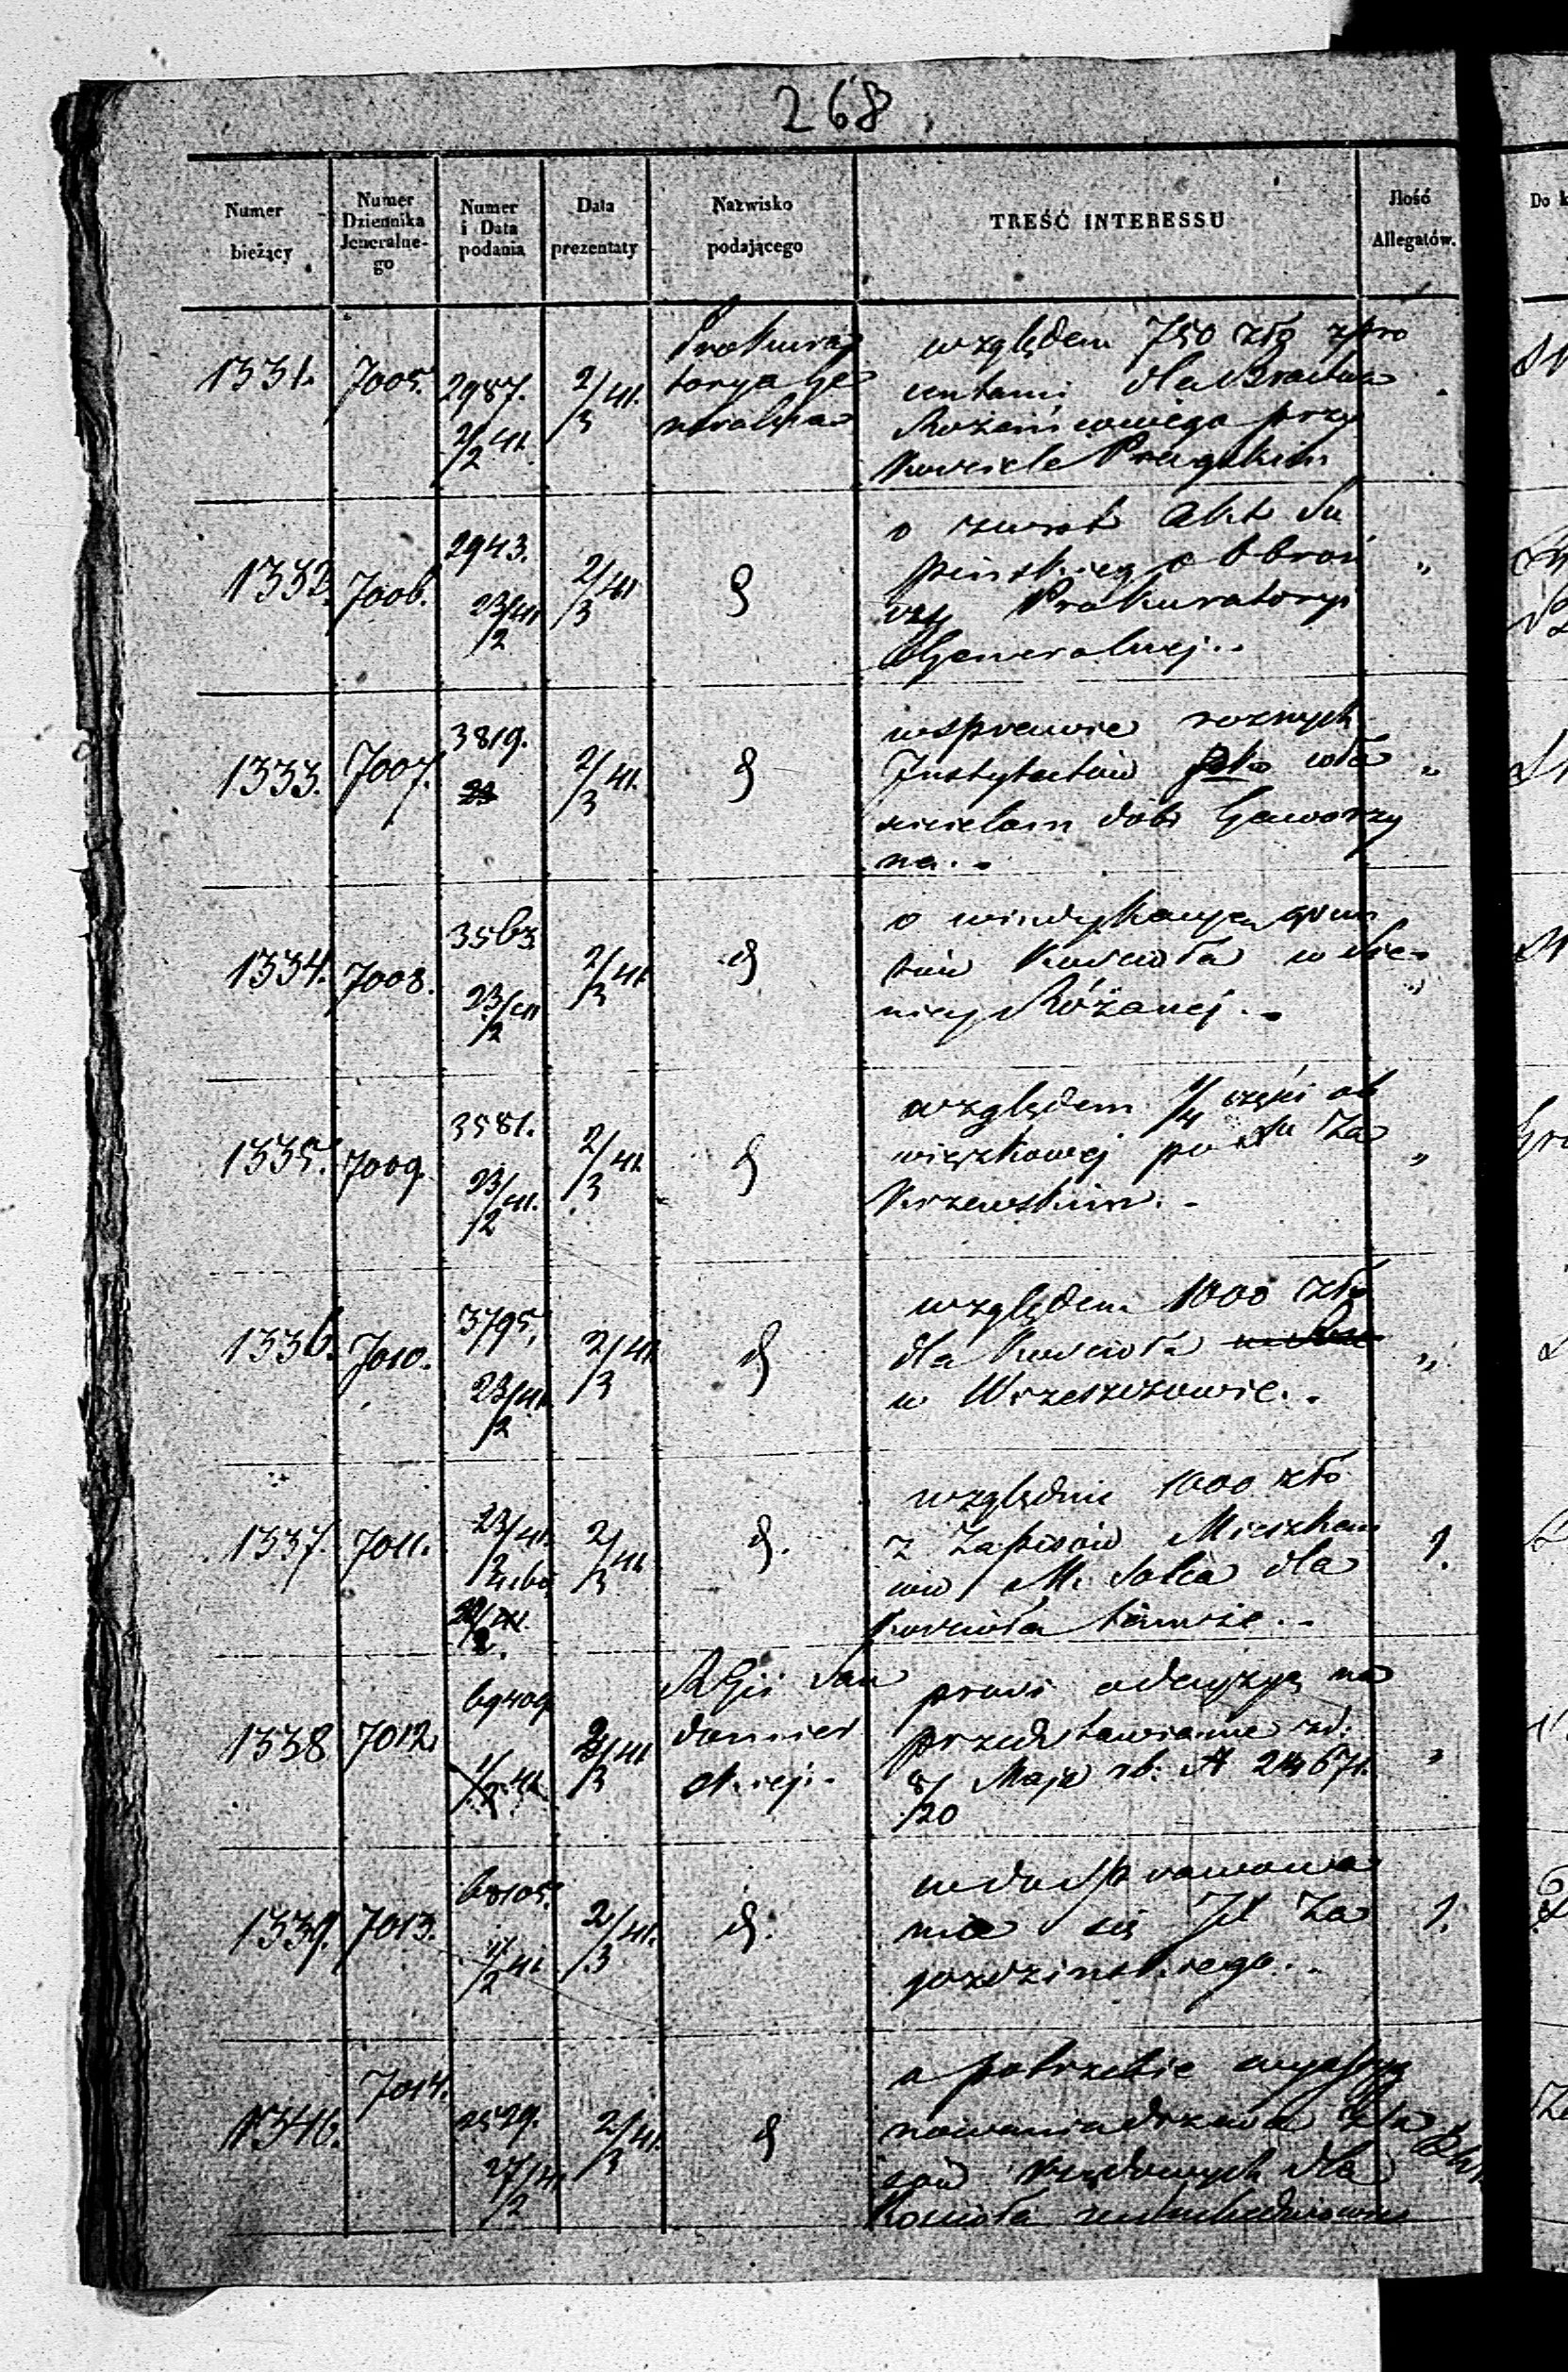 268
Numer
bieżący
Numer
Dziennika
Jeneralne-
go
Numer
i Data
podania
Data
prezentaty
Nazwisko
podającego
TREŚĆ INTERESSU
Ilość
Allegatów.
Do k
1331.
7005.
2987.
2/2 41.
2/3 41.
Prokura
torya Ge
neralna
względem 750 złp z pro
centami dla Bractwa
Rożańcowego przy
Kosciele Pragskim
1332.
7006.
2943.
23/2 41
2/3 41
d
o zwrot Akt Su
pinskiego Obroń
cy Prokuratoryi
Generalnej..
"
1333.
7007.
3819.
2/3 41.
d
w sprawie roznych
Instytutów pko wła
scicielom dobr Gaworzy
na..
"
1334.
7008.
3563
23/2 41
2/3 41
d
o windykacyą grun
tów Kościoła w Sie-
nicy Różanej..
"
1335.
7009.
3581.
23/2 41.
2/3 41.
d
względem 1/4 części ob
wiązkowej po Xdu Za
krzewskim.-
"
1336.
7010.
3795.
23/2 41.
2/3 41
d
względem 1000 złp
dla Kosciola
w Wrzeszczowie..
"
1337.
7011.
23/2 41.
2/3 41.
d.
względnie 1000 złp
z Zapisów Mieszkań
ców M. Solca dla
Kościoła tamże..
1.
1338
7012.
69409
2/3 41
RGu San
domier
skiej.-
prosi o decyzyą na
przedstawienie zd.
8/20 Maja rb. N 24671.
"
1339.
7013.
2/3 41.
d.
nia się JX Za
gozdzinskiego..
1.
1340.
7014.
2529.
27/2 41
2/3 41.
d
o potrzebie wyassyg
nowania drzewa z La
sów rządowych dla
Kosciola